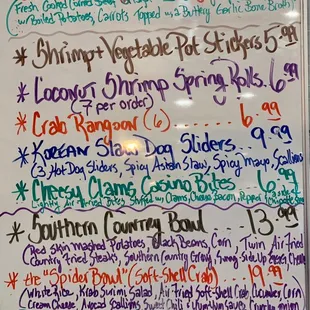 Fresh Cooked Corned
w/Boiled Potatoes, Carrots Topped w/a Buttery Garlic Bone Broth)
* Shrimp + Vegetable Pot Stickers 5.99
* Coconut Shrimp Spring Rolls. 6.99
(7 per order)
* Crab Rangoon (6) ..... 6.99
* Korean Slaw Dog Sliders... 9.99
(3 Hot Dog Sliders, Spicy Asian Slaw, Spicy mayo, Scallions
* Cheesy Clams Casino Bites 6.99
Lightly Air Fried Bites Stuffed w/ Clams, Cheese, Bacon, Peppers
* Southern Country Bowl ... 13.99
(Red Skin Mashed Potatoes, Black Beans, Corn, Twin Air Fried
Country Fried Steaks, Southern Country Gravy, Sunny Side Up Cheese
* the "Spider Bowl" (Soft-Shell Crab) 19.99
(White Rice, Krab Surimi Salad, Air Fried Soft-Shell Crab, Cucumber, Corn
Cream Cheese, Avocado, Scallions, Sweet Chili & Onion